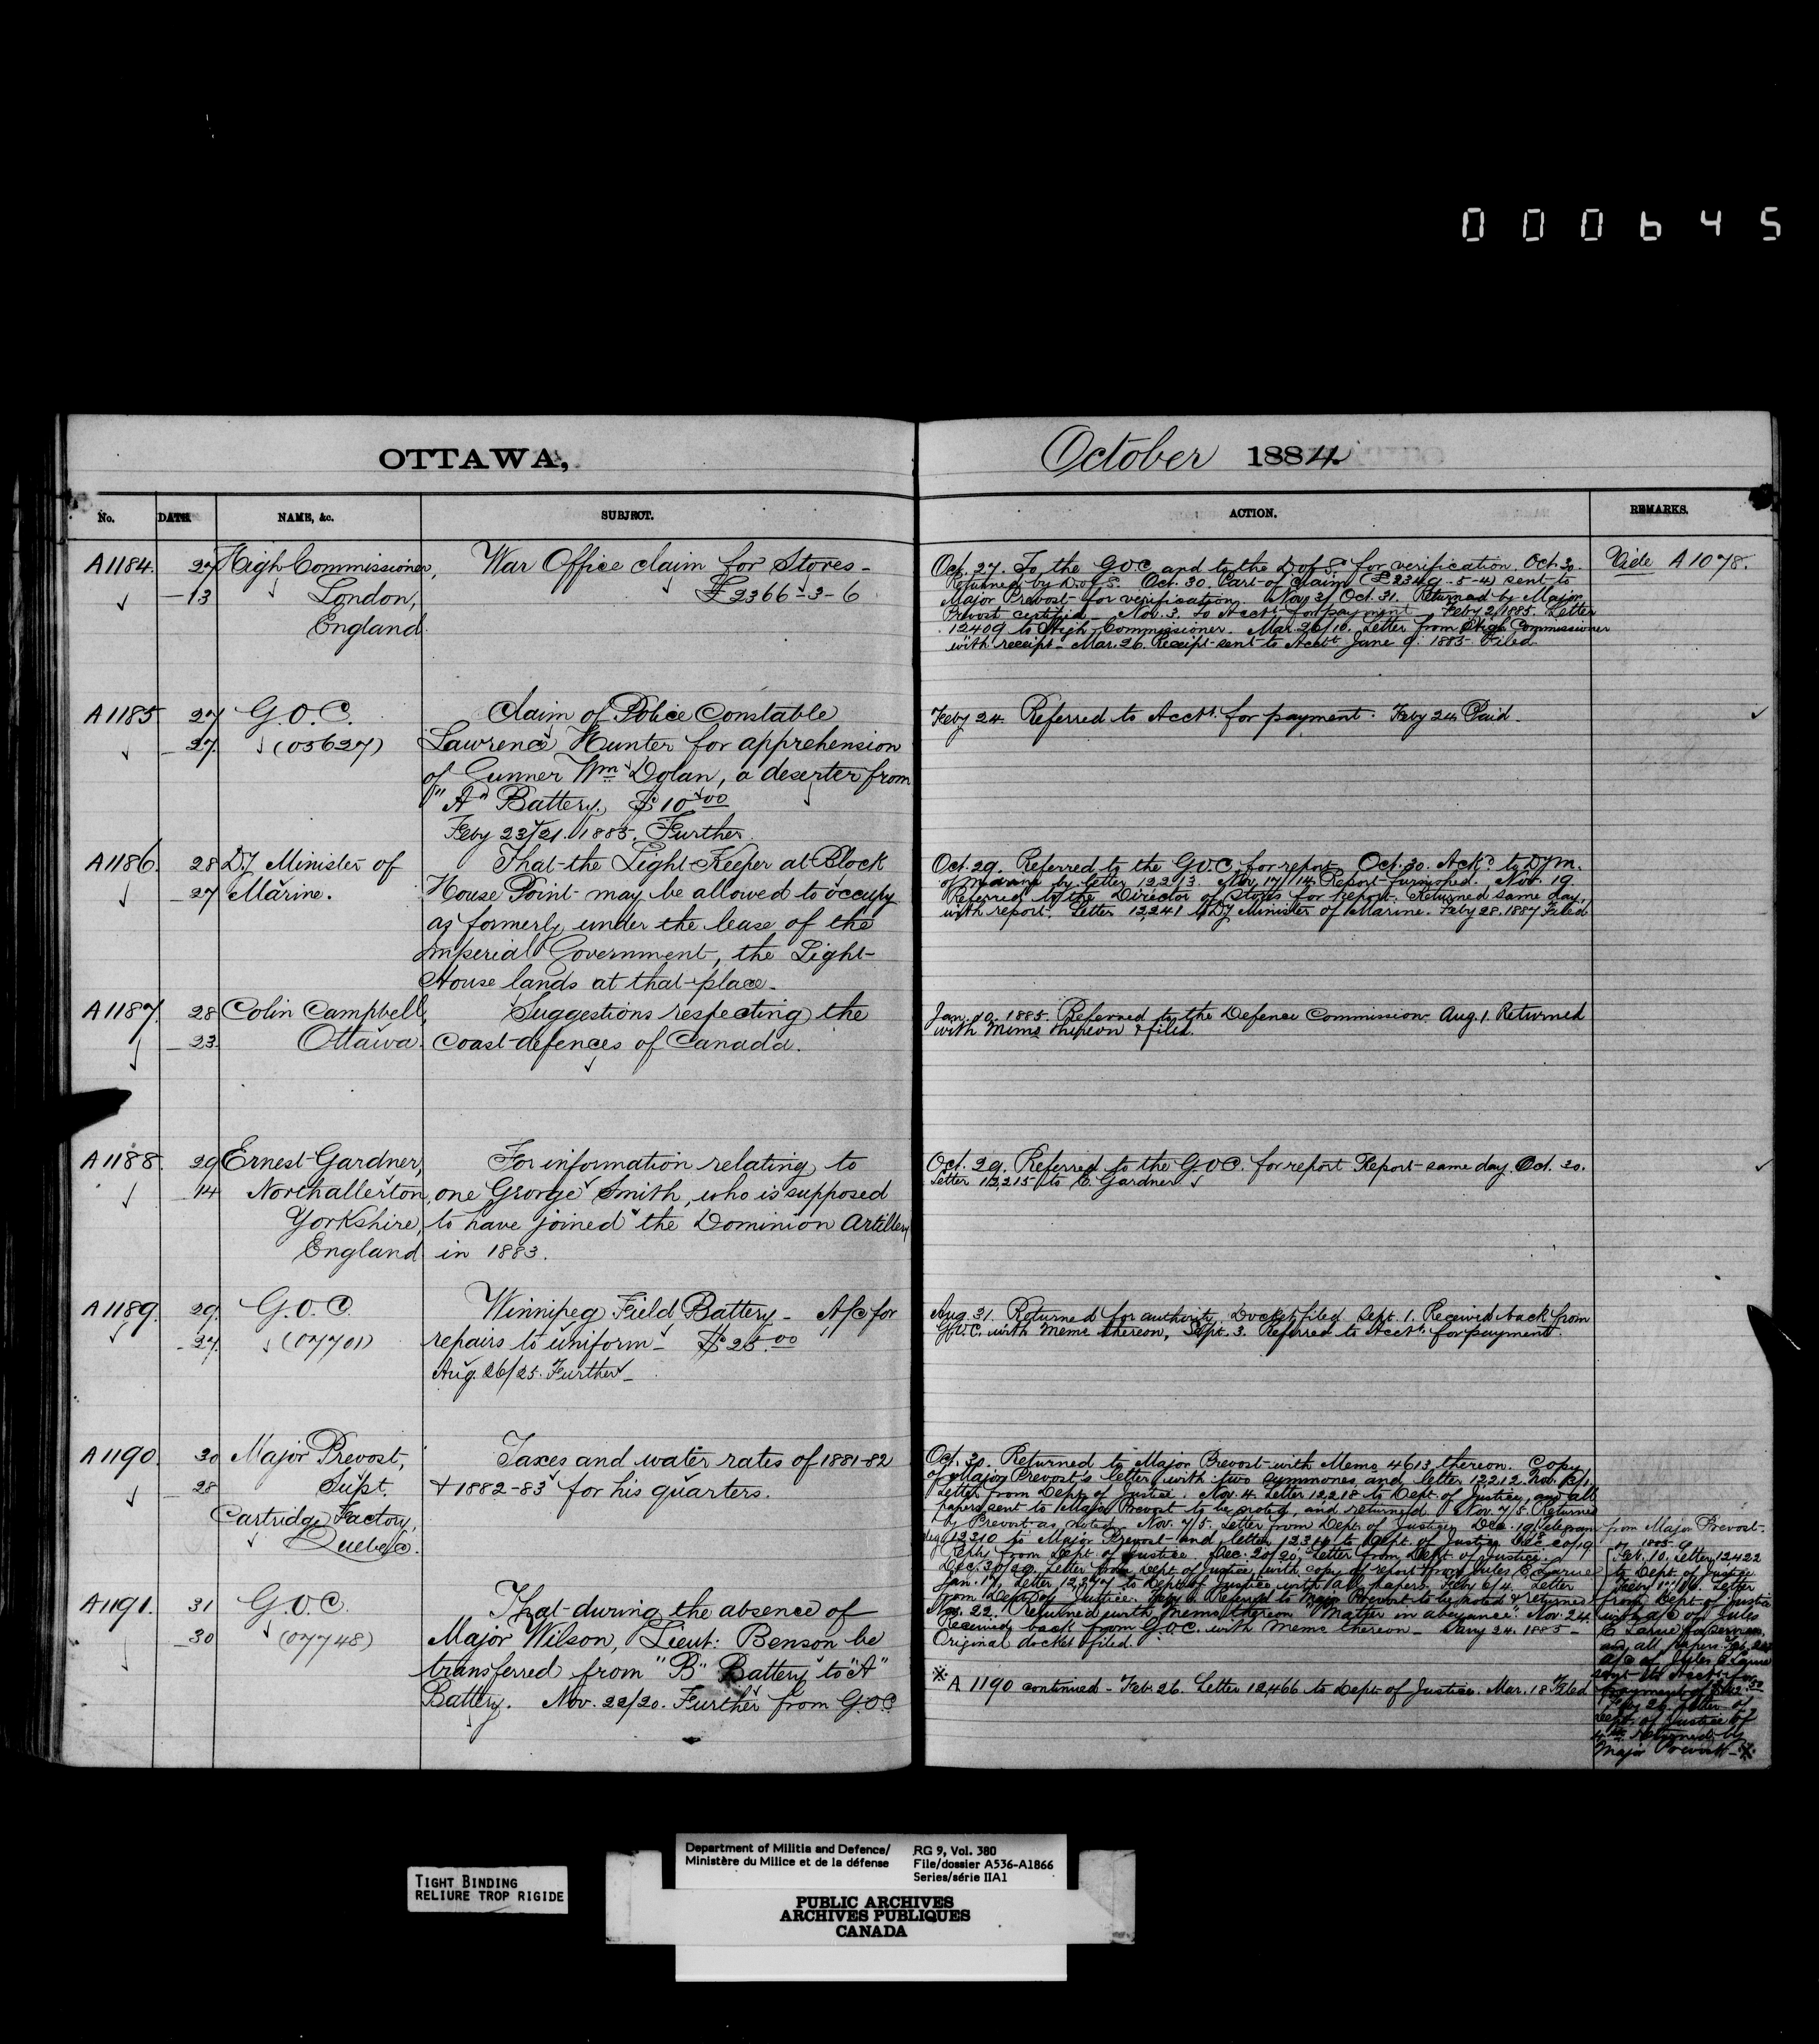 000645
OTTAWA,
October 1884.
No. DATE NAME, &c. SUBJECT.
ACTION. REMARKS.
A1184. 27 High Commissioner, War Office claim for Stores-
13 London, £2366-3-6
England.
Oct. 27. To the G.O.C. and to the D of S. for verification. Oct. 30.
Returned by D. of S. Oct. 30. Part of claim (£2349-5-4) sent to
Major Prevost for verification. Nov. 3/Oct. 31. Returned by Major
Prevost certified. Nov. 3. To Acct. for payment. Feby 2/1885. Letter
12409 to High Commissioner. Mar. 26/10. Letter from High Commissioner
with receipt- Mar. 26. Receipt sent to Acctt. June 9. 1885. Filed
Vide A 1078.
A1185 27 G.O.C. Claim of Police Constable
27 (03627) Lawrence Hunter for apprehension
of Gunner Wm. Dolan, a deserter from
"A" Battery. $10.00
Feby 23/21. 1885. Further.
Feby 24. Referred to Acctt. for payment. Feby 24. Paid.
A1186. 28 Dy Minister of That the Light-Keeper at Block
27 Marine. House Point may be allowed to occupy
as formerly under the lease of the
Imperial Government, the Light-
House lands at that place.
Oct. 29. Referred to the G.O.C. for report. Oct. 30. Ackd. to Dy M.
of Marine by letter 12213. Nov. 17/14. Report furnished. Nov. 19
Referred to the Director of Stores for report. Returned same day,
with report. Letter 12,241 to Dy Minister of Marine. Feby 28. 1887 Filed
A1187. 28 Colin Campbell, Suggestions respecting the
23. Ottawa. Coast defences of Canada.
Jan. 10. 1885. Referred to the Defence Commission. Aug. 1. Returned
with Memo thereon & filed.
A1188. 29 Ernest Gardner, For information relating to
14 Northallerton, one George Smith, who is supposed
Yorkshire, to have joined the Dominion Artillery
England in 1883.
Oct. 29. Referred to the G.O.C. for report. Report same day. Oct. 30.
Letter 12,215 to E. Gardner
A1189. 29. G.O.C. Winnipeg Field Battery- A/c for
27. (07701) repairs to uniform- $25.00
Aug. 26/25. Further-
Aug. 31. Returned for authority. Docket filed. Sept. 1. Received back from
G.O.C. with Memo thereon, Sept. 3. Referred to Acctt. for payment.
A1190. 30 Major Prevost, Taxes and water rates of 1881-82
28 Supt. & 1882-83 for his quarters.
Cartridge Factory,
Quebec.
Oct. 30. Returned to Major Prevost with Memo 4613 thereon. Copy
of Major Prevost's letter with two summones and letter 12212. Nov.
Letter from Dept. of Justice. Nov. 4. Letter 12,218 to Dept. of Justice, and all
papers sent to Major Prevost to be noted, and returned. Nov. 7/5. Returned
by Prevost as noted. Nov. 7/5. Letter from Dept. of Justice. Dec. 19. Telegram from Major Prevost-
12310 to Major Prevost and letter 12314 to Dept. of Justice. Dec. 20/19
Reply from Dept. of Justice. Dec. 20/20, Letter from Dept. of Justice.
Dec. 30/29. Letter from Dept. of Justice, with copy of report from Jules E Larue
Jan. 17. Letter 12,377 to Dept. of Justice with all papers. Feby 6/4. Letter
from Dept. of Justice. Feby 6. Referred to Major Prevost to be noted & returned
Feb. 10. Letter 12422
to Dept. of Justice
Letter
from Dept. of Justice
with a/c of Jules
E Larue for services
and all papers.
a/c of Jules E Larue
sent to Acctt. for
payment
Feby 26. Letter of
Dept. of Justice of
Returned by
Major Prevost-*
A1191. 31 G.O.C. That during the absence of
30 (07748) Major Wilson, Lieut: Benson be
transferred from "B" Battery to "A"
Battery. Nov. 22/20. Further from G.O.C.
Nov. 22. Returned with Memo thereon "Matter in abeyance". Nov. 24.
Received back from G.O.C. with Memo thereon- Jany 24. 1885-
Original docket filed.
* A 1190 continued- Feb. 26. Letter 12,466 to Dept. of Justice. Mar. 18 Filed
TIGHT BINDING
RELIURE TROP RIGIDE
Department of Militia and Defence/
Ministère du Milice et de la défense
RG 9, Vol. 380
File/dossier A536-A1866
Series/série IIA1
PUBLIC ARCHIVES
ARCHIVES PUBLIQUES
CANADA